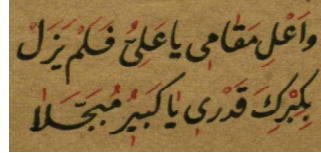 وَاَعْلِ مَقَامِى يَا عَلِىُّ فَلَمْ يَزَلْ
بِكِبْرِكَ قَدْرِى يَا كَبِيرُ مُبَجَّلَا